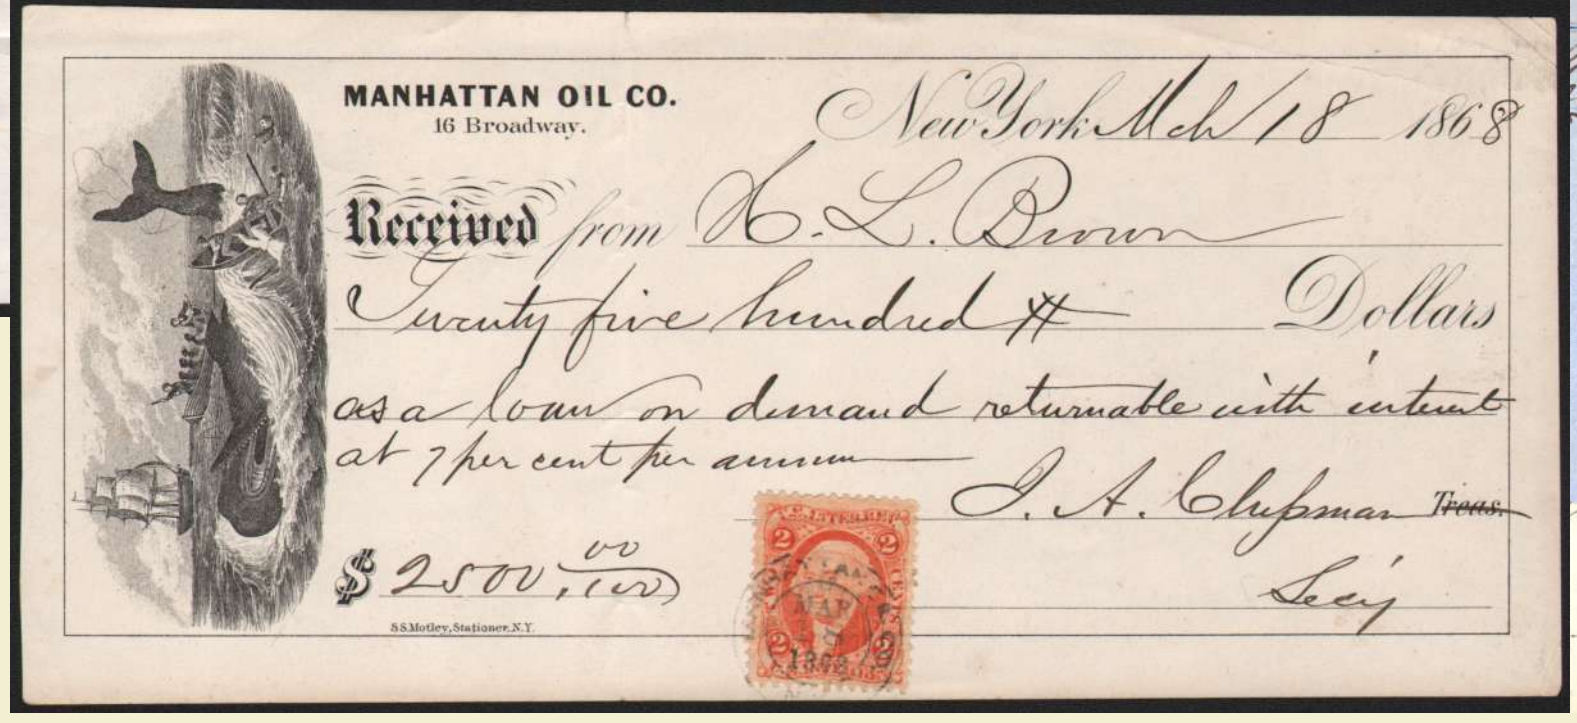 MANHATTAN OIL CO.
16 Broadway.
New York Mch 18 1868
Received from H. L. Brown
Twenty five hundred Dollars
as a loan on demand returnable with interest
at 7 per cent per annum
I. A. Chapman Treas.
Secy
$ 2500.00/100
S.S. Motley, Stationer, N.Y.
U.S. INTER. REV.
2 2
CENTS
MAR
18
1868
2 2